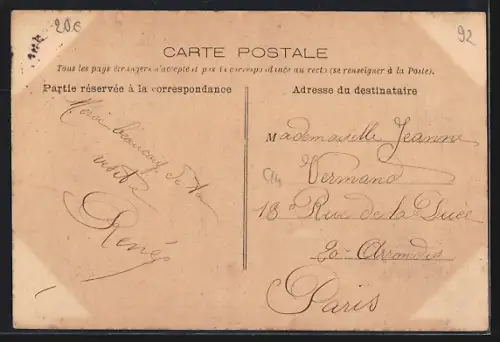 20€
92
CARTE POSTALE
Tous les pays étrangers n'acceptent pas la correspondance au recto (se renseigner à la Poste).
Partie réservée à la correspondance
Merci beaucoup de ta
visite
Renée
Adresse du destinataire
Mademoiselle Jeanne
Vermand
18 Rue de la Duée
20 Arrondis
Paris